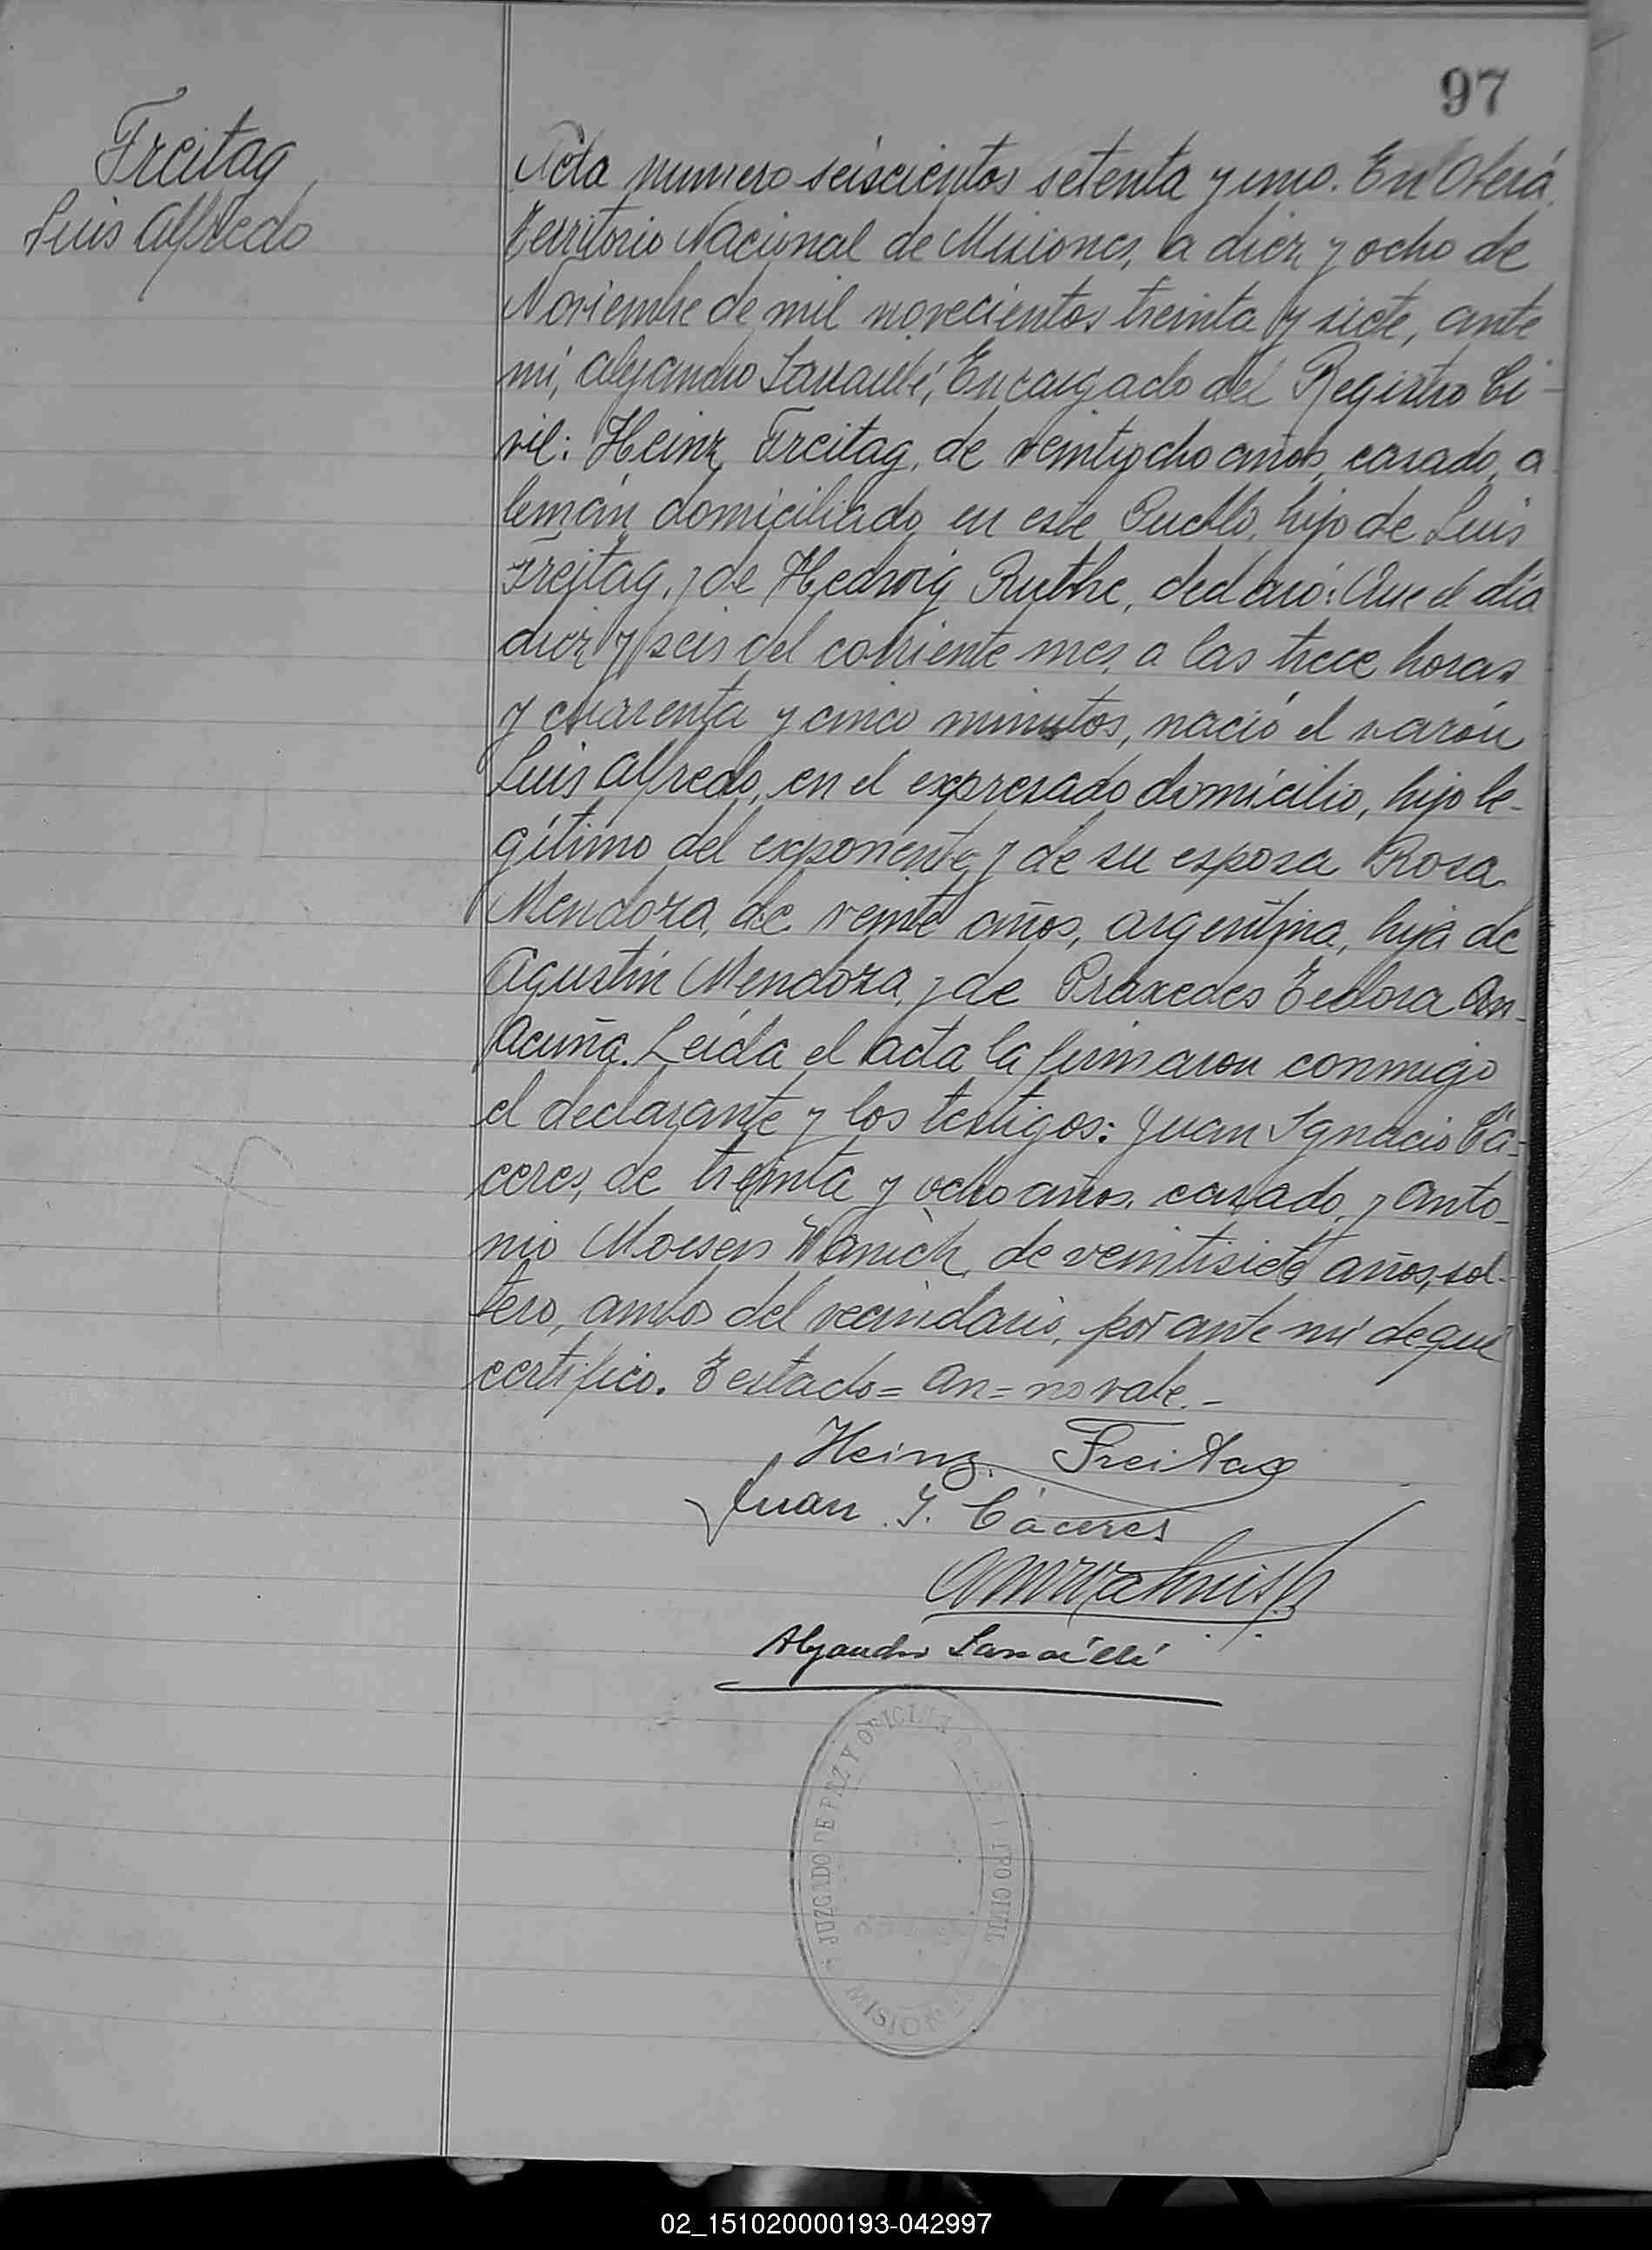 97
Freitag
Luis Alfredo
Acta numero seiscientos setenta y uno. En Oberá,
Territorio Nacional de Misiones, a diez y ocho de
Noviembre de mil novecientos treinta y siete, ante
mí, Alejandro Sarraillé, Encargado del Registro Ci-
vil: Heinz Freitag, de veintiocho años, casado, a
lemán domiciliado en este Pueblo, hijo de Luis
Freitag, y de Hedwig Ruthe, declaró: Que el día
diez y seis del corriente mes, a las trece horas
y cuarenta y cinco minutos, nació el varón
Luis Alfredo, en el expresado domicilio, hijo le-
gítimo del exponente y de su esposa Rosa
Mendoza, de veinte años, argentina, hija de
Agustín Mendoza, y de Praxedes Teodora An-
Acuña. Leída el acta la firmaron conmigo
el declarante y los testigos: Juan Ignacio Cá-
ceres, de treinta y ocho años, casado, y Anto-
nio Moises Wanich, de veintisiete años, sol-
tero, ambos del vecindario, por ante mí de que
certifico. Testado = An = no vale. -
Heinz Freitag
Juan I. Cáceres
Alejandro Sarraillé
JUZGADO DE PAZ Y OFICINA
CIVIL
MISIONES
02_151020000193-042997